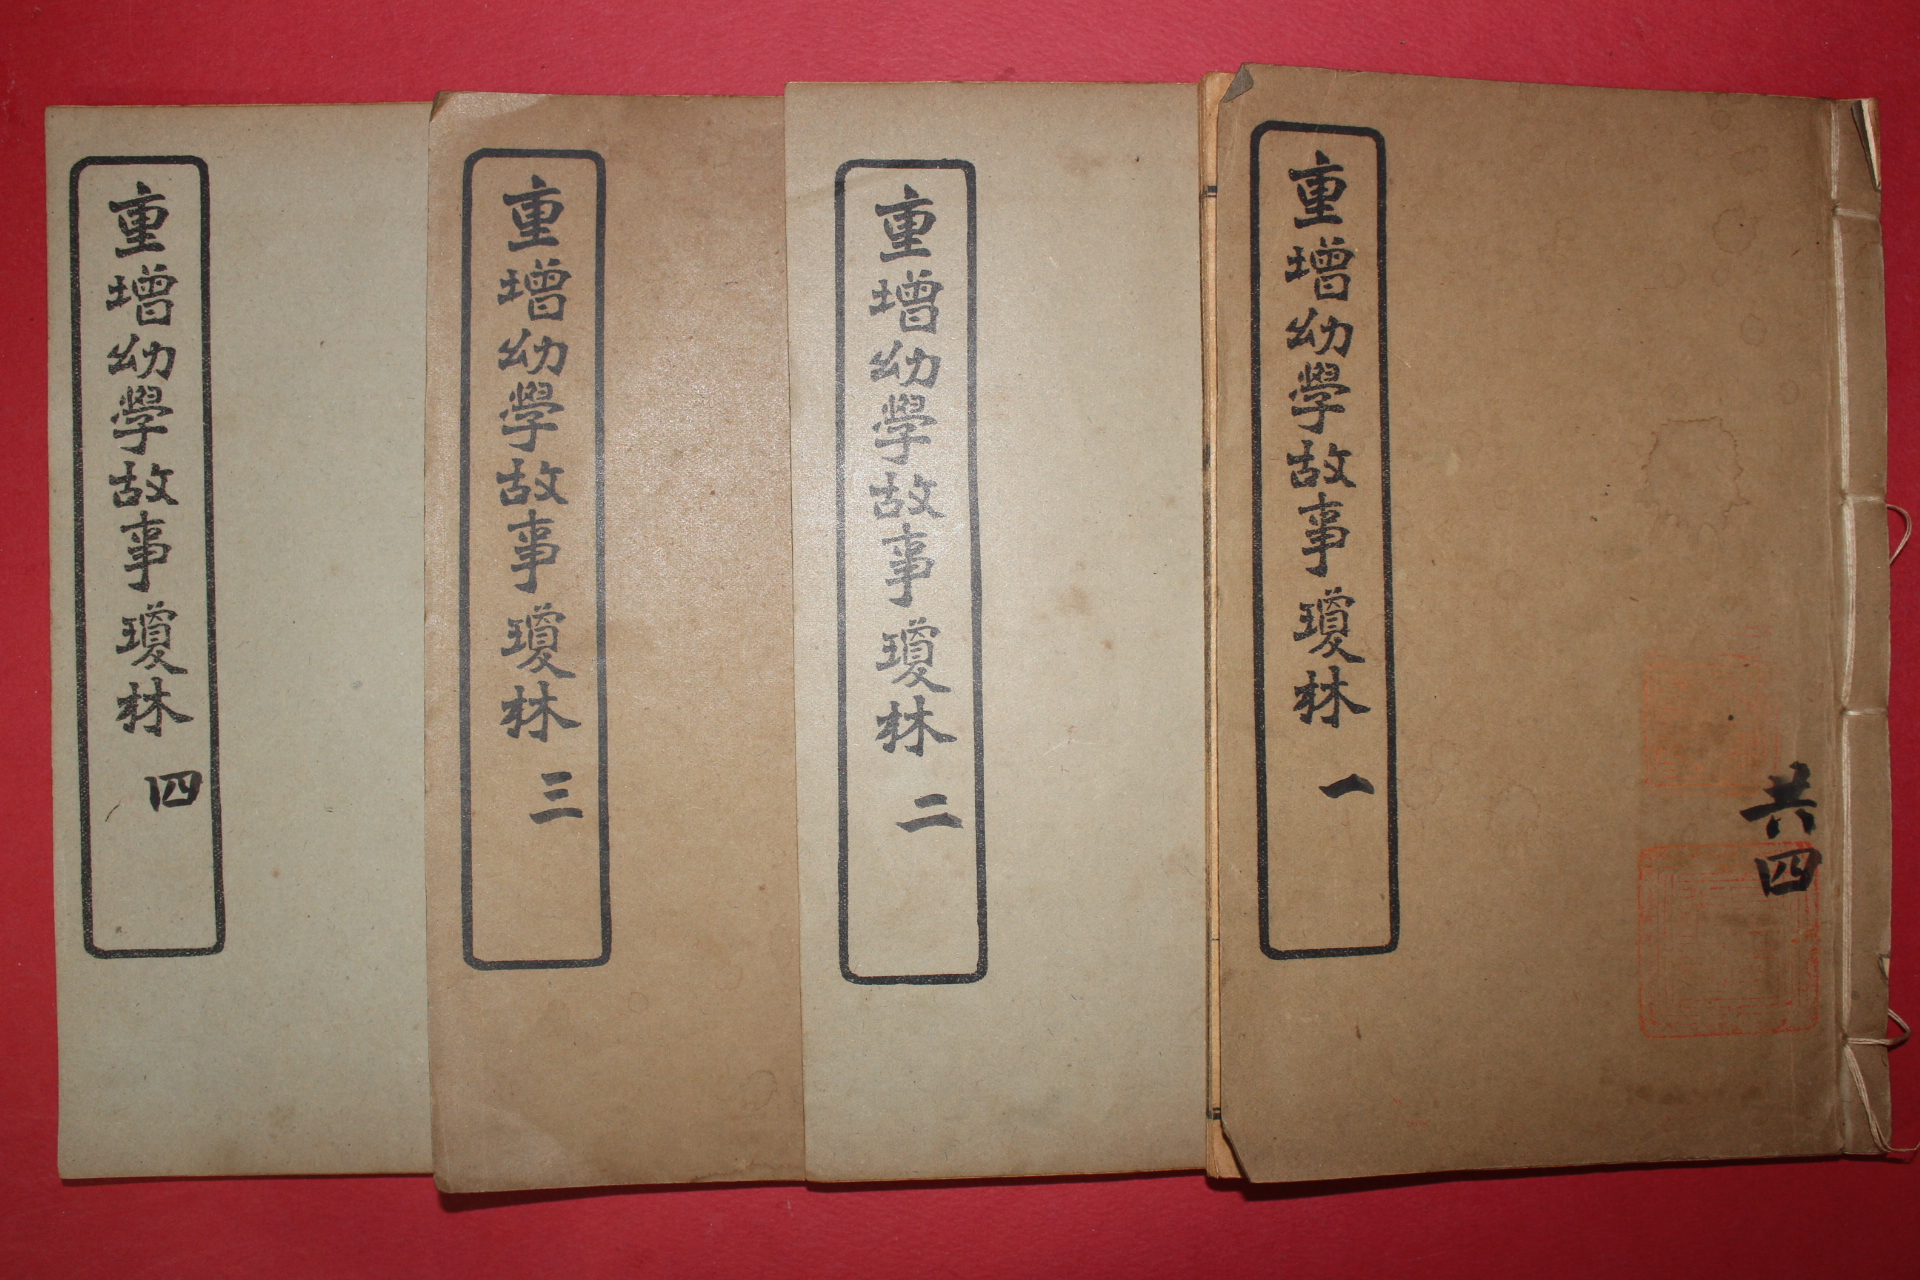 重增幼學故事瓊林 一
共四
重增幼學故事瓊林 二
重增幼學故事瓊林 三
重增幼學故事瓊林 四